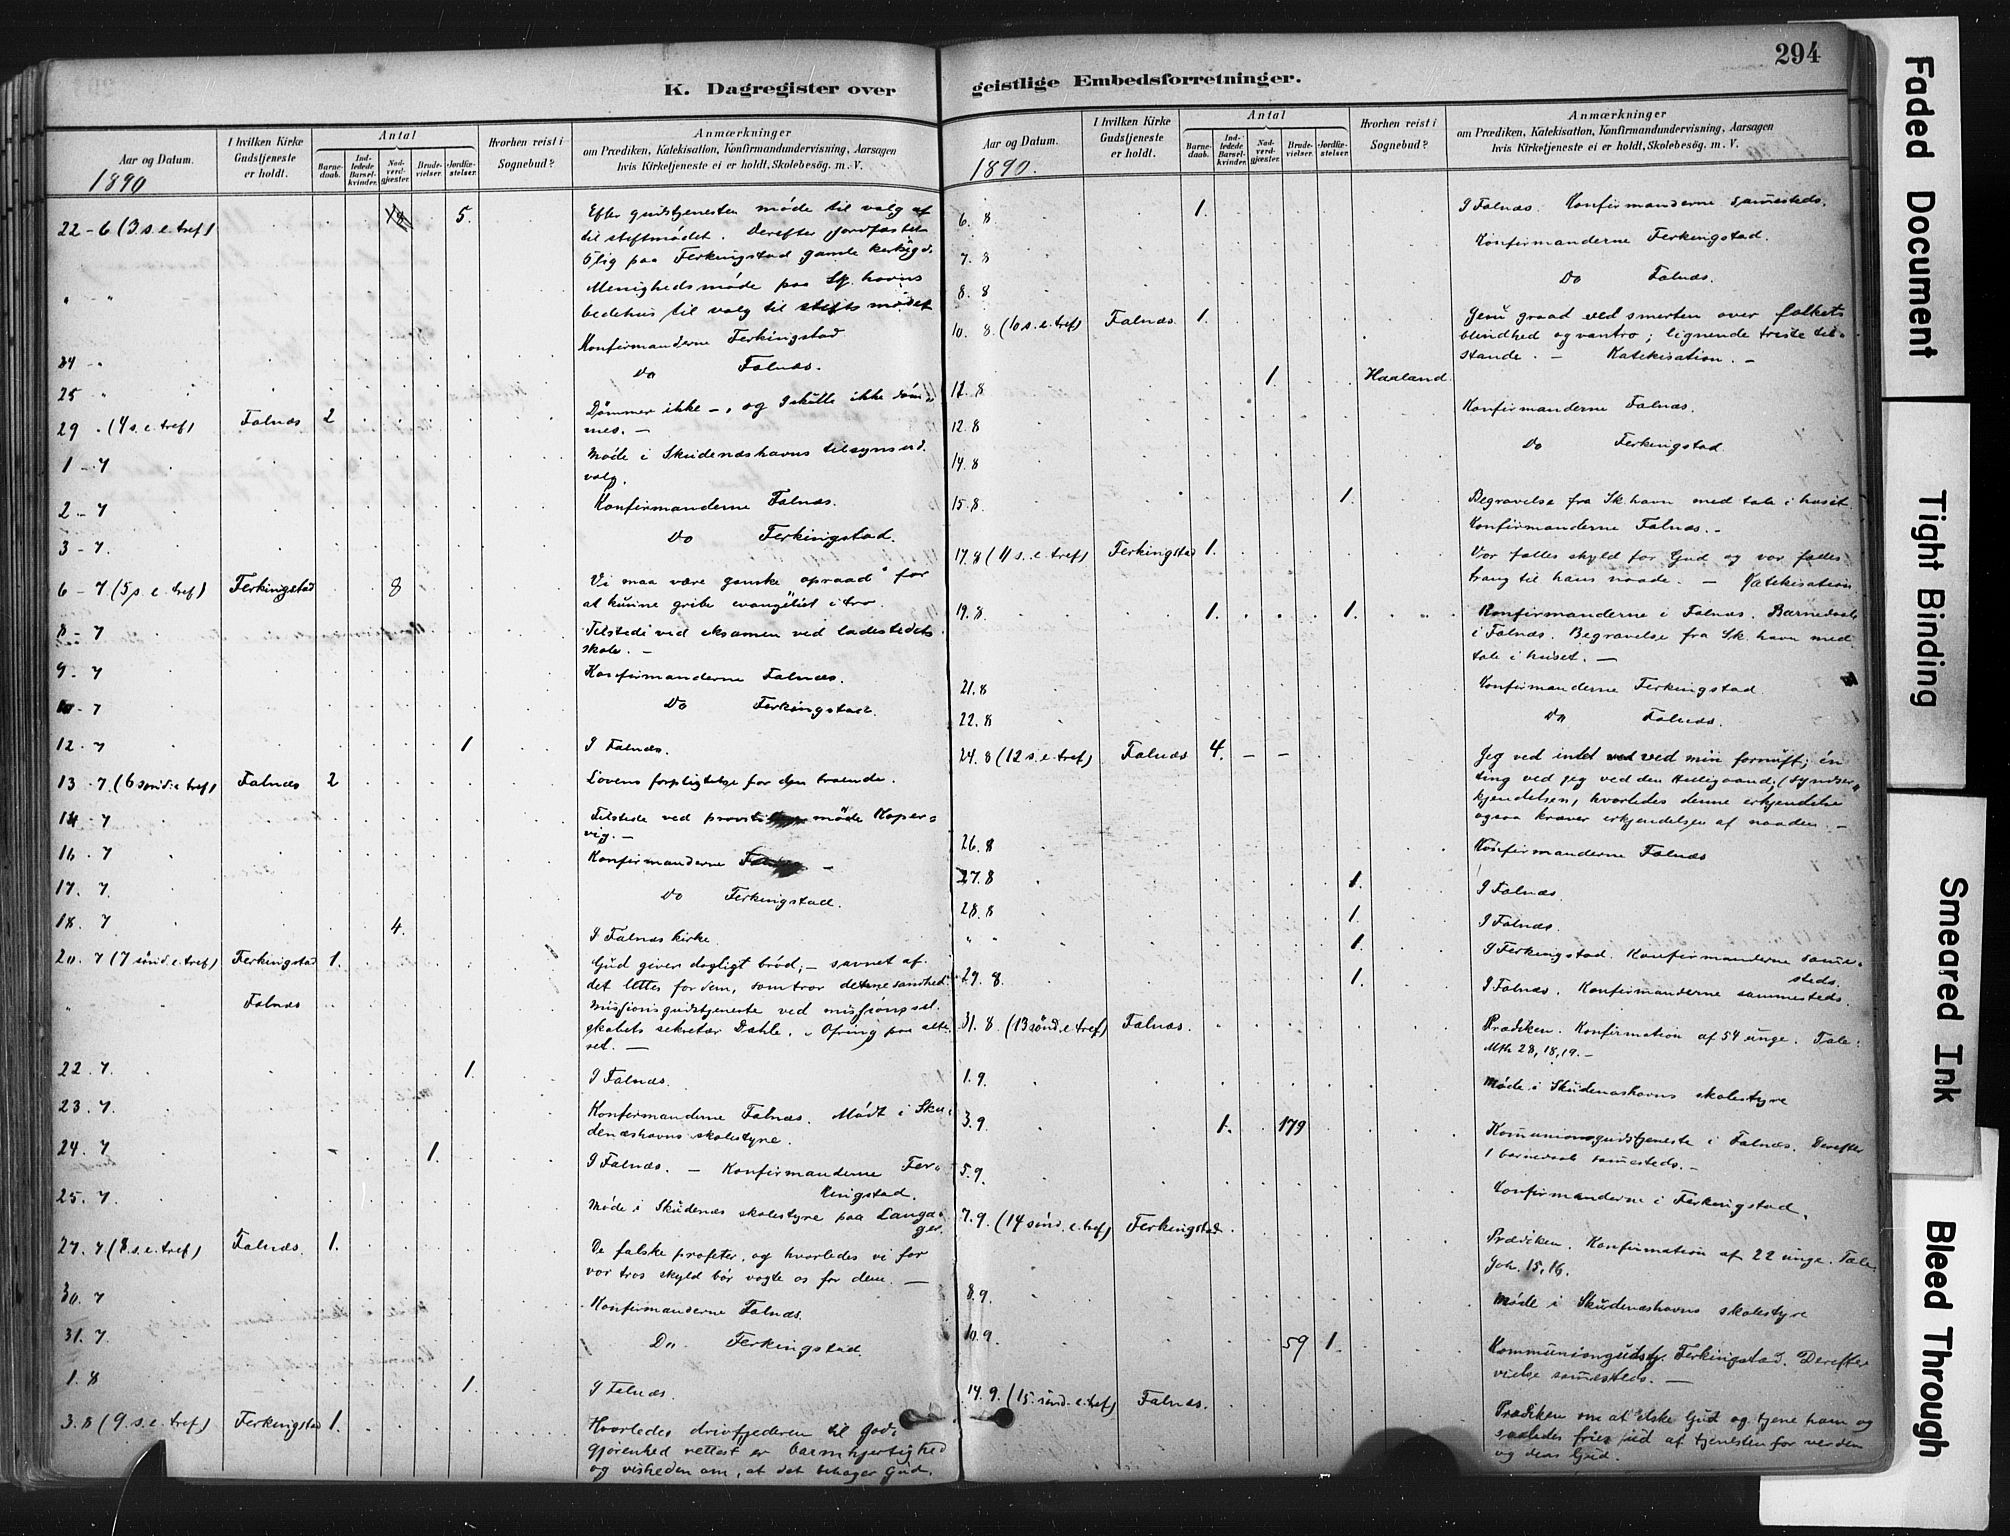 294
K. Dagregister over
Aar og Datum.
I hvilken Kirke Gudstjeneste er holdt.
Antal
Barnedaab.
Indledede Barselkvinder.
Nadverdgjæster.
Brudevielser.
Jordfæstelser.
Hvorhen reist i Sognebud?
Anmærkninger
om Prædiken, Katekisation, Konfirmandundervisning, Aarsagen
hvis Kirketjeneste ei er holdt, Skolebesøg. m. V.
1890
22-6 (3.s.e.tref) 5. Efter gudstjenesten møde til valg af
til stiftmødet. Derefter jordfæstet
5 lig paa Ferkingstad gamle
" " Menighedsmøde paa Sk. havns
bedehus til valg til stiftsmødet
24 " Konfirmanderne Ferkingstad
25 " Do Falnæs.
29 . (4 s.e.tref) Falnæs 2 Dømmer ikke –, og I skulle ikke døm-
mes. –
1 - 7 Møde i Skudenæshavns tilsynsud.
valg.
2 - 7 Konfirmanderne Falnæs.
3 - 7. Do Ferkingstad.
6 - 7 (5 s. e. tref) Ferkingstad 8 Vi maa være ganske opraad" for
at kunne gribe evangeliet i tro.
8 - 7 Tilstede ved eksamen ved ladestedets
skole. –
9 - 7 Konfirmanderne Falnæs.
10 - 7 Do Ferkingstad.
12 - 7 1 I Falnæs.
13 - 7. (6 sønd.e.tref) Falnæs 2 Lovens forpligtelse for den troende.
14 - 7 Tilstede ved møde Koper-
vig. –
16 . 7 Konfirmanderne –
17. 7 Do Ferkingstad.
18. 7 4. I Falnæs kirke.
20. 7 (7 sønd.e.tref) Ferkingstad 1. Gud giver dagligt brød; – savnet af
det lettes for dem, som tror denne sandhed.
" Falnæs Missionsgudstjeneste ved missionssel-
skabets sekretær Dahle. Ofring paa alte-
ret. –
22. 7. 1. I Falnæs.
23. 7. Konfirmanderne Falnæs. Mødt i Sku-
denæshavns skolestyre.
24. 7 1. I Falnæs. – Konfirmanderne Fer-
kingstad.
25. 7 Møde i Skudenæs skolestyre paa Langaa-
ger.
27. 7 (8 s.e.tref) Falnæs. 1. De falske profeter, og hvorledes vi for
vor tros skyld bør vogte os for dem. –
30. 7 Konfirmanderne Falnæs.
31. 7. Do Ferkingstad.
1. 8 1. I Falnæs.
3. 8 (9. s.e.tref) Ferkingstad 1. Hvorledes drivfjederen til god-
gjørenhed rettest er barmhjertighed
og visheden om, at det behager Gud.
geistlige Embedsforretninger.
Aar og Datum.
I hvilken Kirke Gudstjeneste er holdt.
Antal
Barnedaab.
Indledede Barselkvinder.
Nadverdgjæster.
Brudevielser.
Jordfæstelser.
Hvorhen reist i Sognebud?
Anmærkninger
om Prædiken, Katekisation, Konfirmandundervisning, Aarsagen
hvis Kirketjeneste ei er holdt, Skolebesøg. m. V.
1890.
6. 8 1. I Falnæs. Konfirmanderne sammesteds.
7. 8 Konfirmanderne Ferkingstad.
8. 8 Do Falnæs.
10. 8. (10 s.e.tref) Falnæs 1. Jesu graad ved smerten over folkets
blindhed og vantro; lignende triste til-
stande. – Katekisation. –
12. 8 1. Haaland.
12. 8 Konfirmanderne Falnæs.
14. 8 Do Ferkingstad.
15. 8 1. Begravelse fra Sk. havn med tale i huset.
Konfirmanderne Falnæs. –
17. 8 (11 s.e.tref) Ferkingstad 1. Vor fælles skyld for Gud og vor fælles
trang til hans naade. – Katekisation
19. 8 1. 1. Konfirmanderne i Falnæs. Barnedaab
i Falnæs. Begravelse fra Sk. havn med
tale i huset. –
21. 8 Konfirmanderne Ferkingstad
22. 8 Do Falnæs.
24. 8 (12 s.e.tref) Falnæs 4. – – Jeg ved intet ved min fornuft; én
ting ved jeg ved den Helligaand; (synds er-
kjendelsen, hvorledes denne erkjendelse
ogsaa kræver erkjendelsen af naaden. –
26. 8 Konfirmanderne Falnæs
27. 8 1. I Falnæs.
28. 8 1. I Falnæs.
" " 1. I Ferkingstad. Konfirmanderne samme-
steds.
29. 8. 1. I Falnæs. Konfirmanderne sammesteds.
31. 8. (13 sønd.e.tref) Falnæs. Prædiken. Konfirmation af 54 unge. Tale:
Mth 28, 18, 19. –
1. 9. Møde i Skudenæshavns skolestyre
3. 9. 1. 179 Kommunionsgudstjeneste i Falnæs. Derefter
1 barnedaab sammesteds. –
5. 9. Konfirmanderne i Ferkingstad.
7. 9. (14 sønd.e.tref) Ferkingstad. Prædiken. Konfirmation af 22 unge. Tale
Joh. 15, 16.
8. 9. Møde i Skudenæshavns skolestyre
10. 9. 59 1. Kommuniongudstj. Ferkingstad. Derefter
vielse sammesteds. –
14. 9. (15. sønd.e.tref) Falnæs. Prædiken om at elske Gud og tjene ham og
saaledes fries ud af tjenesten for verden
og dens Gud.
Faded Document
Tight Binding
Smeared Ink
Bleed Through